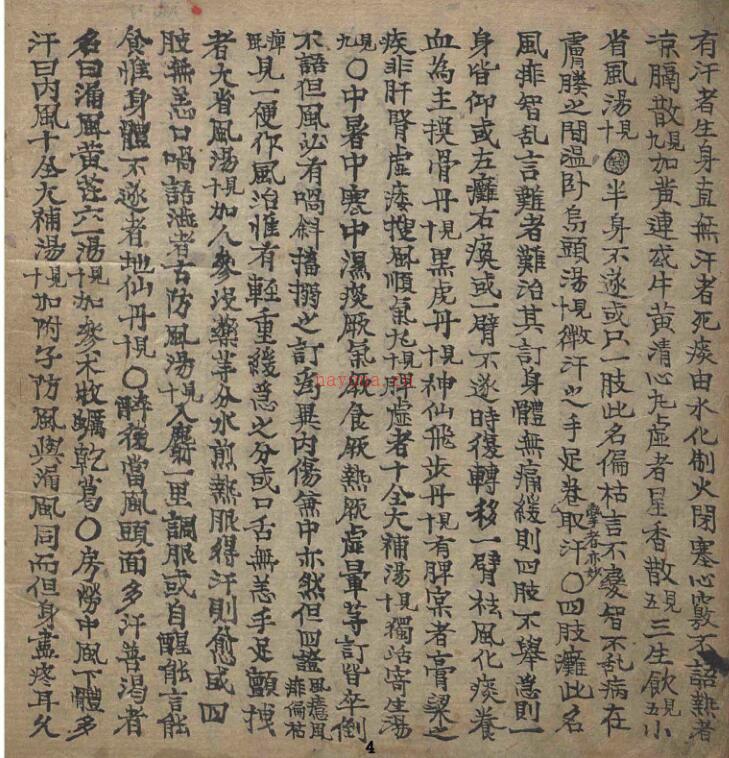 有汗者生身直無汗者死痰由水化制火閉塞心竅不語熱者
凉膈散見九加黄連或牛黄清心九虚者星香散見五三生飲見五小
省風湯見十半身不遂或只一肢此名偏枯言不變智不乱病在
膚腠之間温卧烏頭湯見十微汗之手足卷取汗〇四肢癱此名
攣者亦妙
風痱智乱言難者難治其訂身體無痛緩則四肢不舉急則一
身皆仰或左癱右瘓或一臂不遂時復轉移一臂祛風化痰養
血為主換骨丹見十黒虎丹見十神仙飛步丹見十有脾宲者膏粱之
疾非肝腎虚痿搜風順氣九見十脾虚者十全大補湯見十獨活寄生湯
見九〇中暑中寒中濕痰厥氣厥食厥熱厥虚暈等訂皆卒倒
不語但風必有喎斜搐搦之訂為異内傷無中亦然但四證風癔風痱偏枯
痺見一便作風治惟有輕重緩急之分或口舌無恙手足顫拽
者大省風湯見十加人參没藥羊分水煎熱服得汗則愈或四
肢無恙口喎語澁者古防風湯見十入麝一里調服或自醒能言能
食惟身體不遂者地仙丹見十〇醉後當風頭面多汗善渴者
名曰漏風黄芪六一湯見十加參术牡蠣乾葛〇房勞中風下體多
汗曰内風十全大補湯見十加附子防風與漏風同而但身盡疼耳久
hayona.ru
4